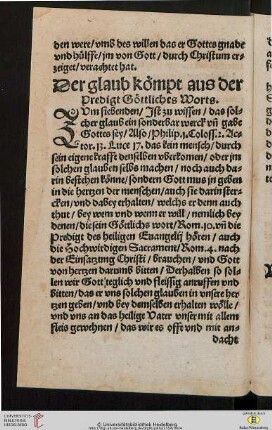 den were/ vmb des willen das er Gottes gnade
vnd hülffe/ jm von Gott/ durch Christum er-
zeiget/ verachtet hat.
Der glaub kömpt aus der
Predigt Göttliches Worts.
ZVm siebenden/ Ist zu wissen/ das sol-
cher glaub ein sonderbar werck vnd gabe
Gottes sey/ Also/ Philip. 1. Coloss. 2. Ac-
tor. 13. Luce 17. das kein mensch/ durch
sein eigene krafft denselben vberkomen/ oder jm
solchen glauben selbs machen/ noch auch da-
rin bestehen könne/ sondern Gott mus jn geben
in die hertzen der menschen/ auch sie darin ster-
cken/ vnd dabey erhalten/ welchs er denn auch
thut/ bey wem vnd wenn er will/ nemlich bey
denen/ die sein Göttlichs wort/ Rom. 10. vnd die
Predigt des heiligen Euangelij hören/ auch
die Hochwirdigen Sacrament/ Rom. 4. nach
der Einsatzung Christi/ brauchen/ vnd Gott
von hertzen darumb bitten/ Derhalben so sol-
len wir Gott teglich vnd fleissig anruffen vnd
bitten/ das er vns solchen glauben in vnsere her-
tzen geben/ vnd bey demselben erhalten wölle/
vnd vns an das heilige Vater vnser mit allem
fleis gewehnen/ das wir es offt vnd mit an-
dacht
UNIVERSITÄTS-
BIBLIOTHEK
HEIDELBERG
© Universitätsbibliothek Heidelberg